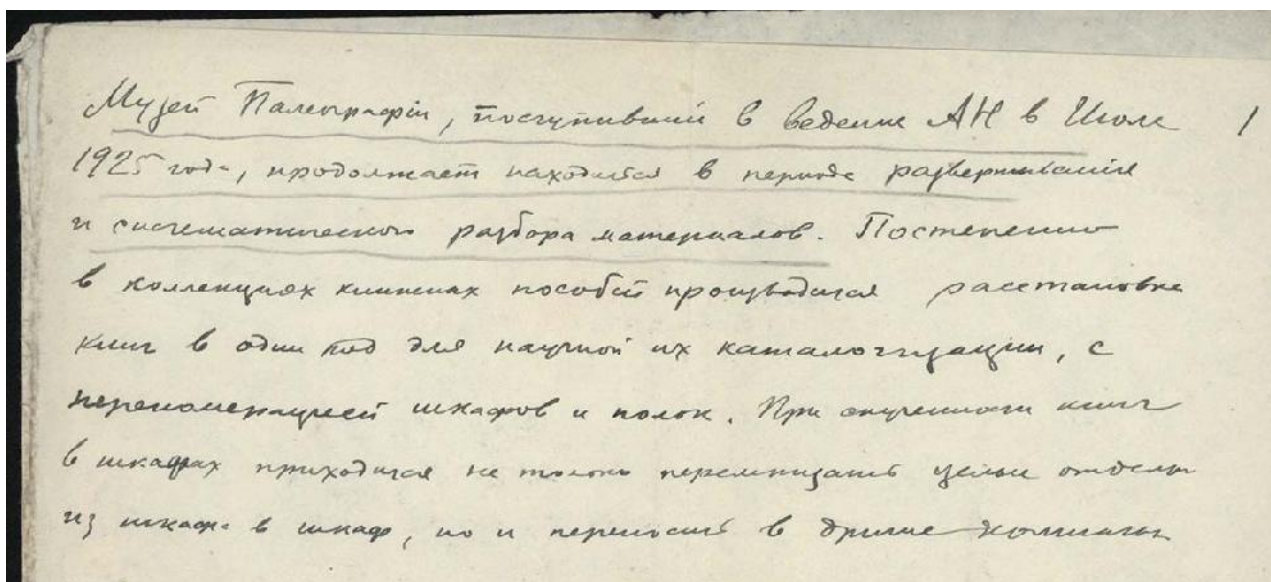 Музей Палеографии, поступивший в ведение АН в Июле 1
1925 года, продолжает находиться в периоде развертывания
и систематического разбора материалов. Постепенно
в коллекциях книжных пособий производится расстановка
книг в один ряд для научной их каталогизации, с
перенумерацией шкафов и полок. При скученности книг
в шкафах приходится не только перемещать целые отделы
из шкафа в шкаф, но и переносить в другие комнаты